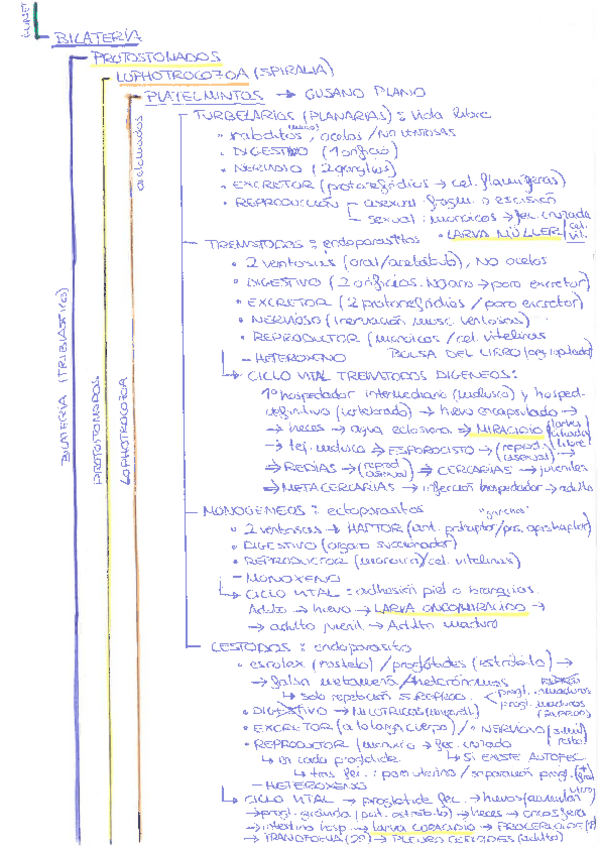 BILATERIA
PROTOSTOMADOS
LOPHOTROCOZOA (SPIRALIA)
PLATELMINTOS → GUSANO PLANO
acelomados
BILATERIA (TRIBLASTICOS)
PROTOSTOMADOS
LOPHOTROCOZOA
TURBELARIOS (PLANARIAS) : Vida libre
• rabditos, ocelos / NO VENTOSAS
• DIGESTIVO (1 orificio)
• NERVIOSO (2 ganglios)
• EXCRETOR (protonefridios → cel. flamígeras)
• REPRODUCCIÓN asexual: fragm. o escisión
sexual: monoicos → fec. cruzada
• LARVA MÜLLER
TREMATODOS : endoparásitos
• 2 ventosas (oral/acetábulo), NO ocelos
• DIGESTIVO (2 orificios. NO ano → poro excretor)
• EXCRETOR (2 protonefridios / poro excretor)
• NERVIOSO (inervación musc. ventosas)
• REPRODUCTOR (monoicos / cel. vitelinas
– HETEROXENO BOLSA DEL CIRRO
↳ CICLO VITAL TREMATODOS DIGENEOS:
1º hospedador intermediario (molusco) y hosped.
definitivo (vertebrado) → huevo encapsulado →
→ heces → agua eclosiona → MIRACIDIO (larva ciliada libre)
→ tej. molusco → ESPOROCISTO → (reprod. asexual) →
⇒ REDIAS → (reprod. asexual) ⇒ CERCARIAS → juveniles
⇒ METACERCARIAS → infección hospedador → adulto
MONOGENEOS : ectoparásitos "ganchos"
• 2 ventosas → HAPTOR (ant. prohaptor / pos. opisthaptor)
• DIGESTIVO (órgano succionador)
• REPRODUCTOR (monoico / cel. vitelinas)
– MONOXENO
↳ CICLO VITAL : adhesión piel o branquias.
Adulto → huevo → LARVA ONCOMIRACIDIO →
→ adulto juvenil → Adulto maduro
CESTODOS : endoparásito
• escolex (rostelo) / proglótides (estróbilo) →
→ falsa metamería / heterónimas
↳ solo repetición S. REPROD. progl. inmaduros
progl. maduros
• DIGESTIVO → MICROTRICAS
• EXCRETOR (a lo largo cuerpo) / • NERVIOSO
• REPRODUCTOR (monoico → fec. cruzada
↳ en cada proglótide ↳ SI EXISTE AUTOFEC.
↳ tras fec.: poro uterino / separación progl.
– HETEROXENO
↳ CICLO VITAL → proglótide fec. → huevos
→ progl. grávida (post. estróbilo) → heces → oncosfera
→ intestino hosp. → larva CORACIDIO → PROCERCOIDE (1º)
→ TRANSTOENA (2º) → PLEUROCERCOIDES (adulto)